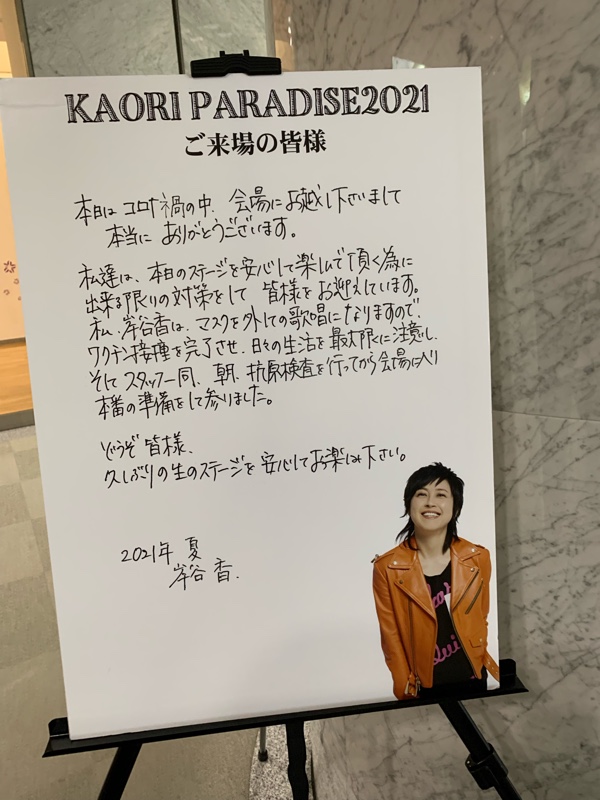 KAORI PARADISE2021
ご来場の皆様
本日は コロナ禍の中、会場にお越し下さいまして
本当に ありがとうございます。
私達は、本日のステージを安心して楽しんで頂く為に
出来る限りの対策をして 皆様をお迎えしています。
私、岸谷香は、マスクを外しての歌唱になりますので、
ワクチン接種を完了させ、日々の生活を最大限に注意し、
そしてスタッフ一同、朝、抗原検査を行ってから会場に入り
本番の準備をして参りました。
どうぞ 皆様、
久しぶりの生のステージを安心してお楽しみ下さい。
2021年 夏
岸谷 香.